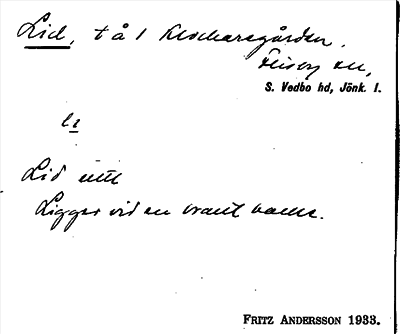 Lid, t å 1 Klockaregården,
Flisby sn,
S. Vedbo hd, Jönk. l.
li
Lid ett
Ligger vid en brant backe.
FRITZ ANDERSSON 1933.